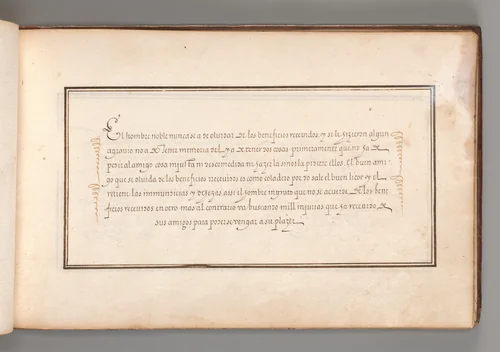 El hombre noble nunca se a de olvidar de los beneficios recevidos, y si le hizieron algun
agravio no a de tener memoria del, y a de tener dos cosas primeramente que no ha de
pedir al amigo cosa injusta ni descomedida ni hazer la sino la pidere ellos. el buen ami
go que se olvida de los beneficios recevidos es como colador por do sale el buen licor y el
retiene las immundicias y hezes assi el hombre ingrato que no se acuerda de los bene
ficios recevidos en otro mas al contrario va buscando mill injurias que ha recevido de
sus amigos para poderse vengar a su plazer